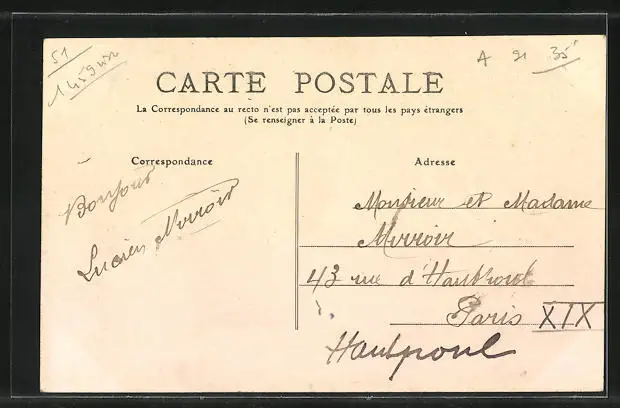 51
1459
A 91 35
CARTE POSTALE
La Correspondance au recto n'est pas acceptée par tous les pays étrangers
(Se renseigner à la Poste)
Correspondance
Bonjour
Lucien Mirroir
Adresse
Monsieur et Madame
Mirroir
43 rue d'Hautpoul
Paris XIX
Hautpoul